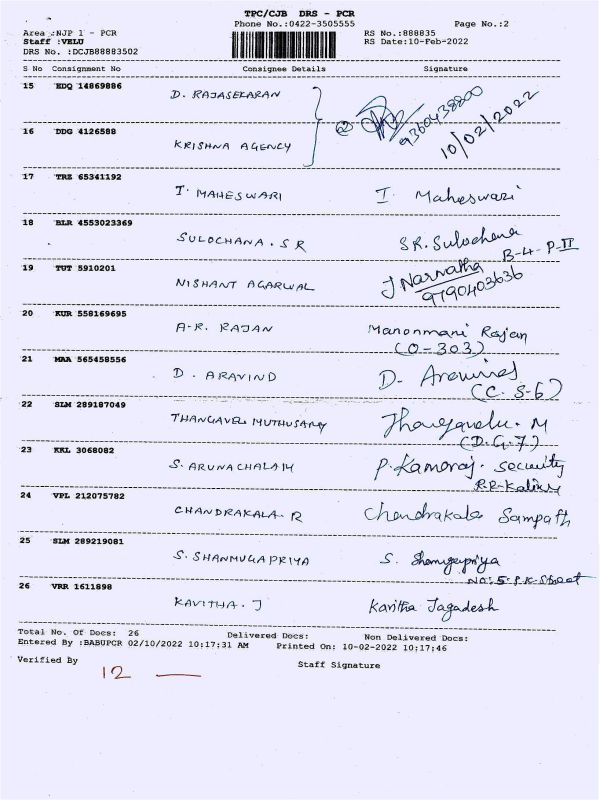 TPC/CJB DRS - PCR
Phone No.:0422-3505555 Page No.:2
Area :NJP 1 - PCR RS No.:888835
Staff :VELU RS Date:10-Feb-2022
DRS No. :DCJB88883502
S No Consignment No Consignee Details Signature
15 EDQ 14869886 D. RAJASEKARAN
9360438800 10/02/2022
16 DDG 4126588 KRISHNA AGENCY
17 TRZ 65341192 T. MAHESWARI T. Maheswari
18 BLR 4553023369 SULOCHANA. S R SR. Sulochana
B-4-P-II
19 TUT 5910201 NISHANT AGARWAL J Narnatha
9790403636
20 KUR 558169695 A-R. RAJAN Manonmani Rajan
(O-303)
21 MAA 565458556 D. ARAVIND D. Aravind
(C. S-6)
22 SLM 289187049 THANGAVEL MUTHUSAMY Thangavelu. M
(D.G.7)
23 KKL 3068082 S. ARUNACHALAM P. Kamaraj. Security
24 VPL 212075782 CHANDRAKALA. R Chandrakala Sampath
25 SLM 289219081 S. SHANMUGAPRIYA S. Shanmugapriya
No: 5. P.K. Street
26 VRR 1611898 KAVITHA. J Kavitha Jagadesh
Total No. Of Docs: 26 Delivered Docs: Non Delivered Docs:
Entered By :BABUPCR 02/10/2022 10:17:31 AM Printed On: 10-02-2022 10:17:46
Verified By Staff Signature
12 —